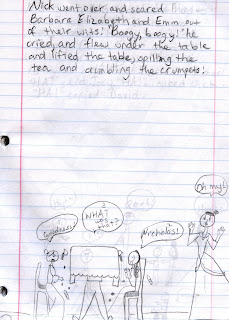 Nick went over and scared
Barbara Elizabeth and Emm out
of their wits! "Boogy, boogy!" he
cried, and flew under the table
and lifted the table, spilling the
tea and crumbling the crumpets!
Oh my!
WHAT
was
that?
Goodness!
Nicholas!